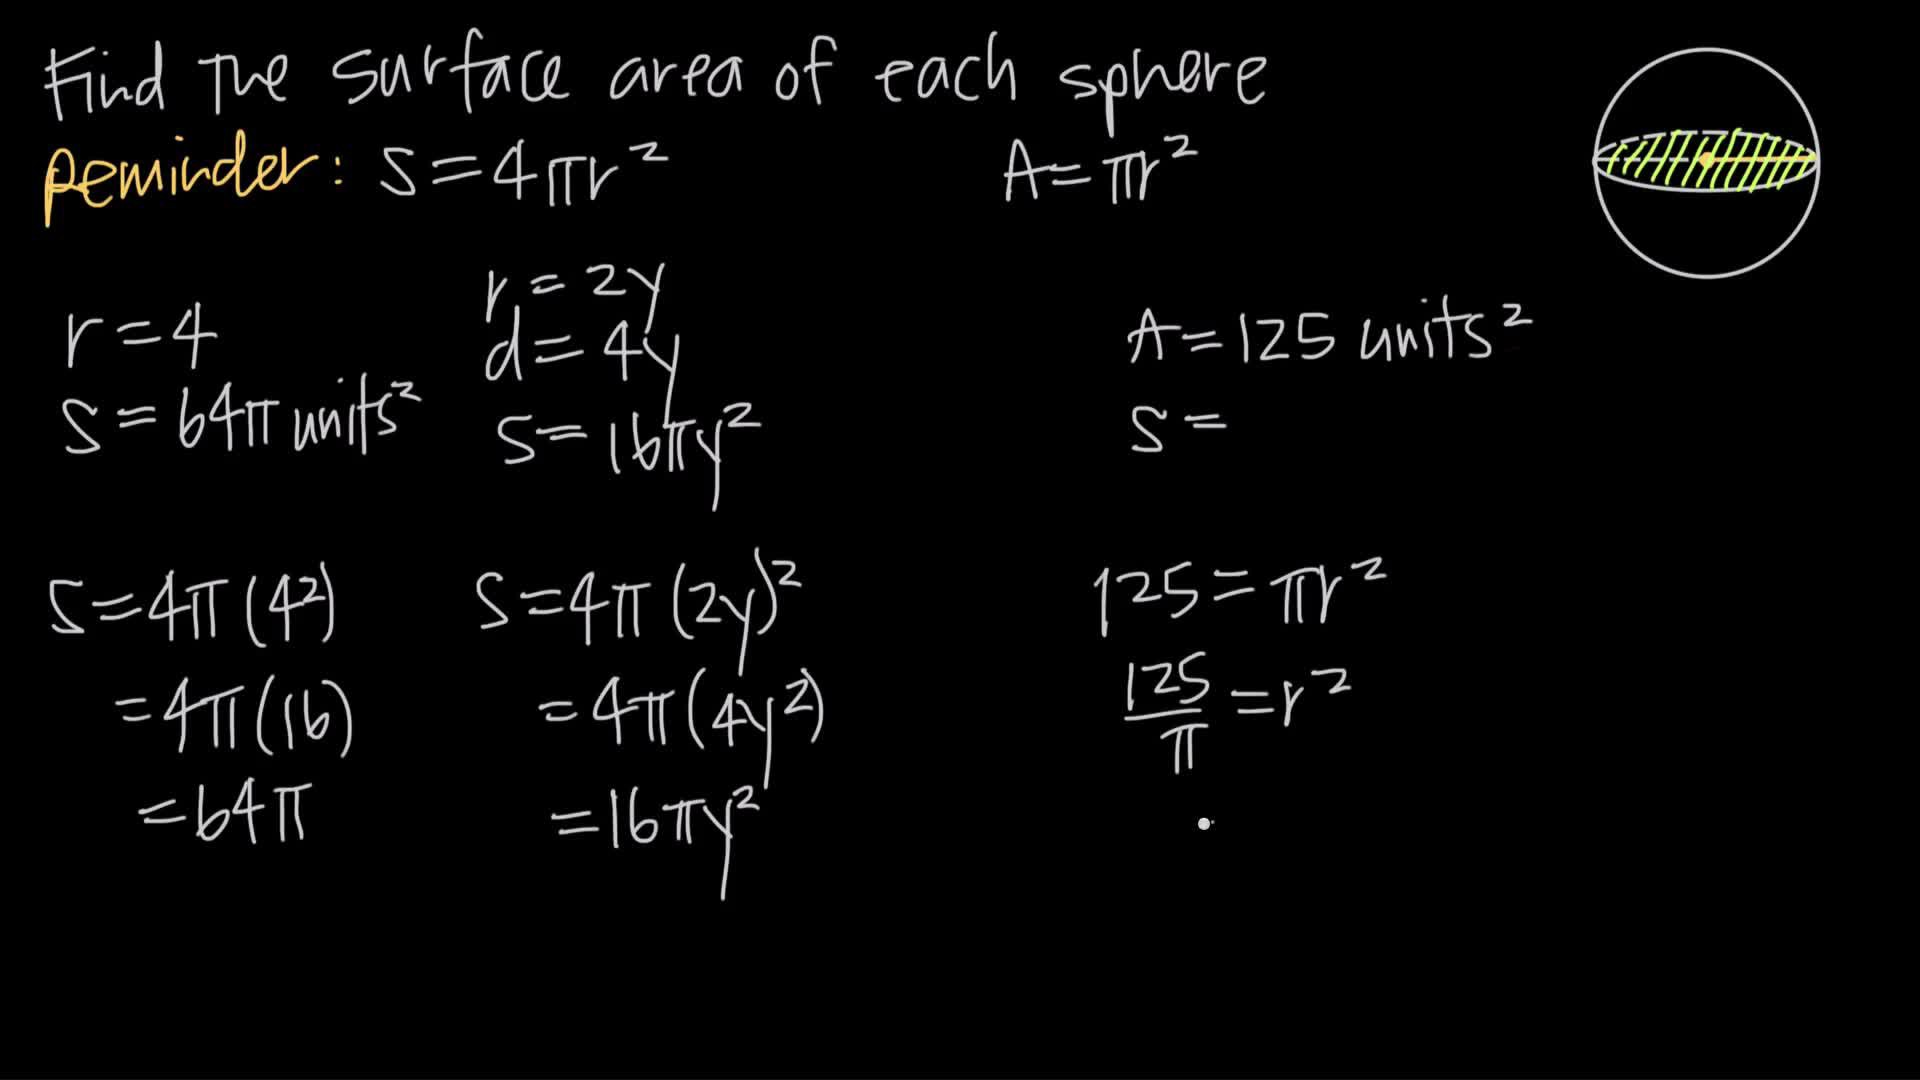 Find the surface area of each sphere
Reminder: S=4πr² A=πr²
r=4
S=64π units²
r=2y
d=4y
S=16πy²
A=125 units²
S=
S=4π(4²)
=4π(16)
=64π
S=4π(2y)²
=4π(4y²)
=16πy²
125=πr²
125/π=r²